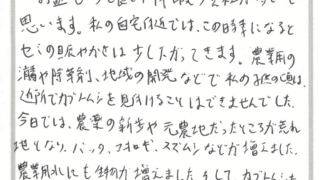 思います。私の自宅付近では、この時季になると
セミの賑やかさは少し大人ってきます。農業用の
溝や除草剤、地域の開発などで私の子供の頃は、
近所でカブトムシを見付けることはできませんでした。
今日では、農業の新歩や元農地だったところが荒れ
地となり、バッタ、コオロギ、スズムシなどが増えました。
農業用水にも生物が増えました。そして、カブトムシも